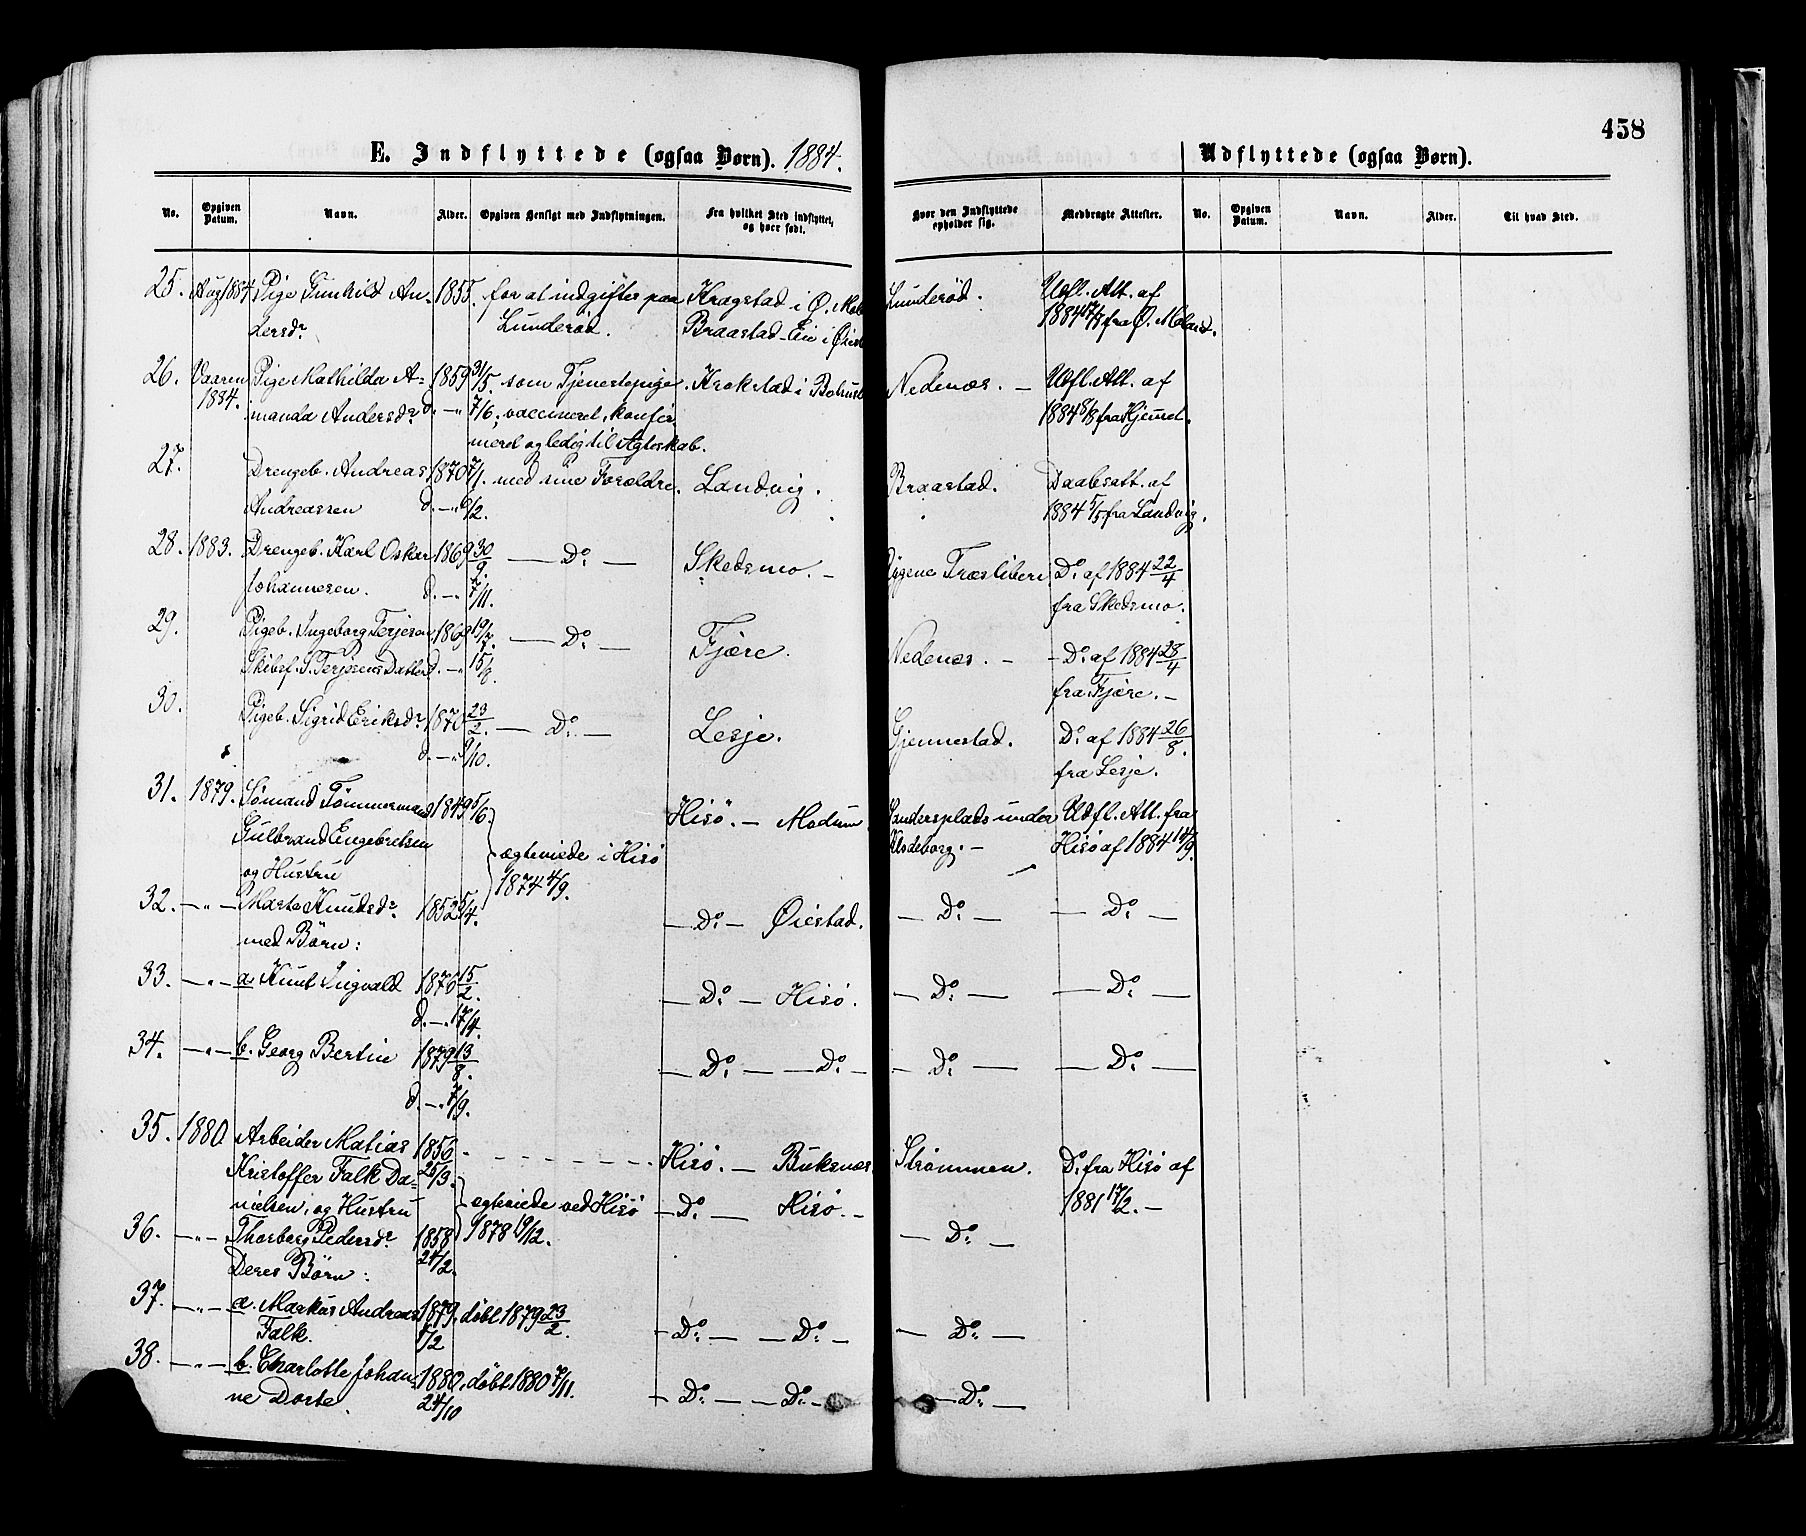 458
E. Indflyttede (ogsaa Børn). 1884.
Udflyttede (ogsaa Børn).
No. Opgiven Datum. Navn. Alder. Opgiven Hensigt med Indflytningen. Fra hvilket Sted indflyttet, og hvor født. Hvor den Indflyttede opholder sig. Medbragte Attester. No. Opgiven Datum. Navn. Alder. Til hvad Sted.
25. Aug 1884 Pige Gunhild An- 1855. for at indgiftes paa Kragstad i Ø. Mol Lunderød. Udfl. Att. af
dersdr Lunderød. Braastad-Eie i Øiest 1884 fra Ø. Moland.
26. Vaaren Pige Mathilda A- 1859 31/5. som Tjenestepige. Krokstad i Bohusl Nedenæs. — Udfl. Att. af
1884. manda Andersdr d. —"— 7/6; vaccineret, konfir- 1884 8/8 fra Hjemst.
meret og ledig til Ægteskab.
27. Drengeb. Andreas 1870 7/1. med sine Forældre. Landvig. Braastad. Daabsatt. af
Andreassen d. —"— 6/2. 1884 5/5 fra Landvig.
28. 1883. Drengeb. Karl Oskar 1869 30/9. — Do — Skedsmo. — Rygene Træsliberi Do. af 1884 22/4
Johannesen. d. —"— 7/11. fra Skedsmo.
29. Pigeb. Ingeborg Terjesen 1869 19/7. — Do — Fjære. Nedenæs. — — Do. af 1884 28/4
Skibsf. S. Terjesens Datter d. —"— 15/8. fra Fjære. —
30. Pigeb. Sigrid Eriksdr 1870 23/2. — Do — Lesje. Gjennestad. Do. af 1884 26/8.
d. —"— 9/10. fra Lesje.
31. 1879. Sømand Tømmermand 1849 5/6. Hisö. — Modum. Sandersplads under Udfl. Att. fra
Gulbrand Engebretsen ægteviede i Hisö Hisö af 1884 14/9.
og Hustru 1874 4/9.
32. —"— Marte Knudsdr 1852 5/4. — Do — Øiestad. — Do — — Do —
med Börn:
33. —"— a. Knut Ingvald 1876 15/2. — Do — Hisö. — Do — — Do —
d. —"— 17/4.
34. —"— b. Georg Bertin 1879 13/8. — Do — — Do — — Do — — Do —
d. —"— 7/9.
35. 1880 Arbeider Matias 1856 Hisö. — Buksnæs Strømmen. Do. fra Hisö af
Kristoffer Falk Da- 25/3. 1881 17/2. —
nielsen, og Hustru ægteviede ved Hisö — Do — Hisö. —
36. —"— Thorborg Pedersdr 1858 1878 19/12. — Do —
Deres Börn: 24/2.
37. —"— a. Markus Andreas 1879. döbt 1879 23/2. — Do — — Do — — Do —
Falk. 1/2
38. —"— b. Charlotte Johan- 1880. döbt 1880 7/11. — Do — — Do — — Do —
ne Dorte. 24/10